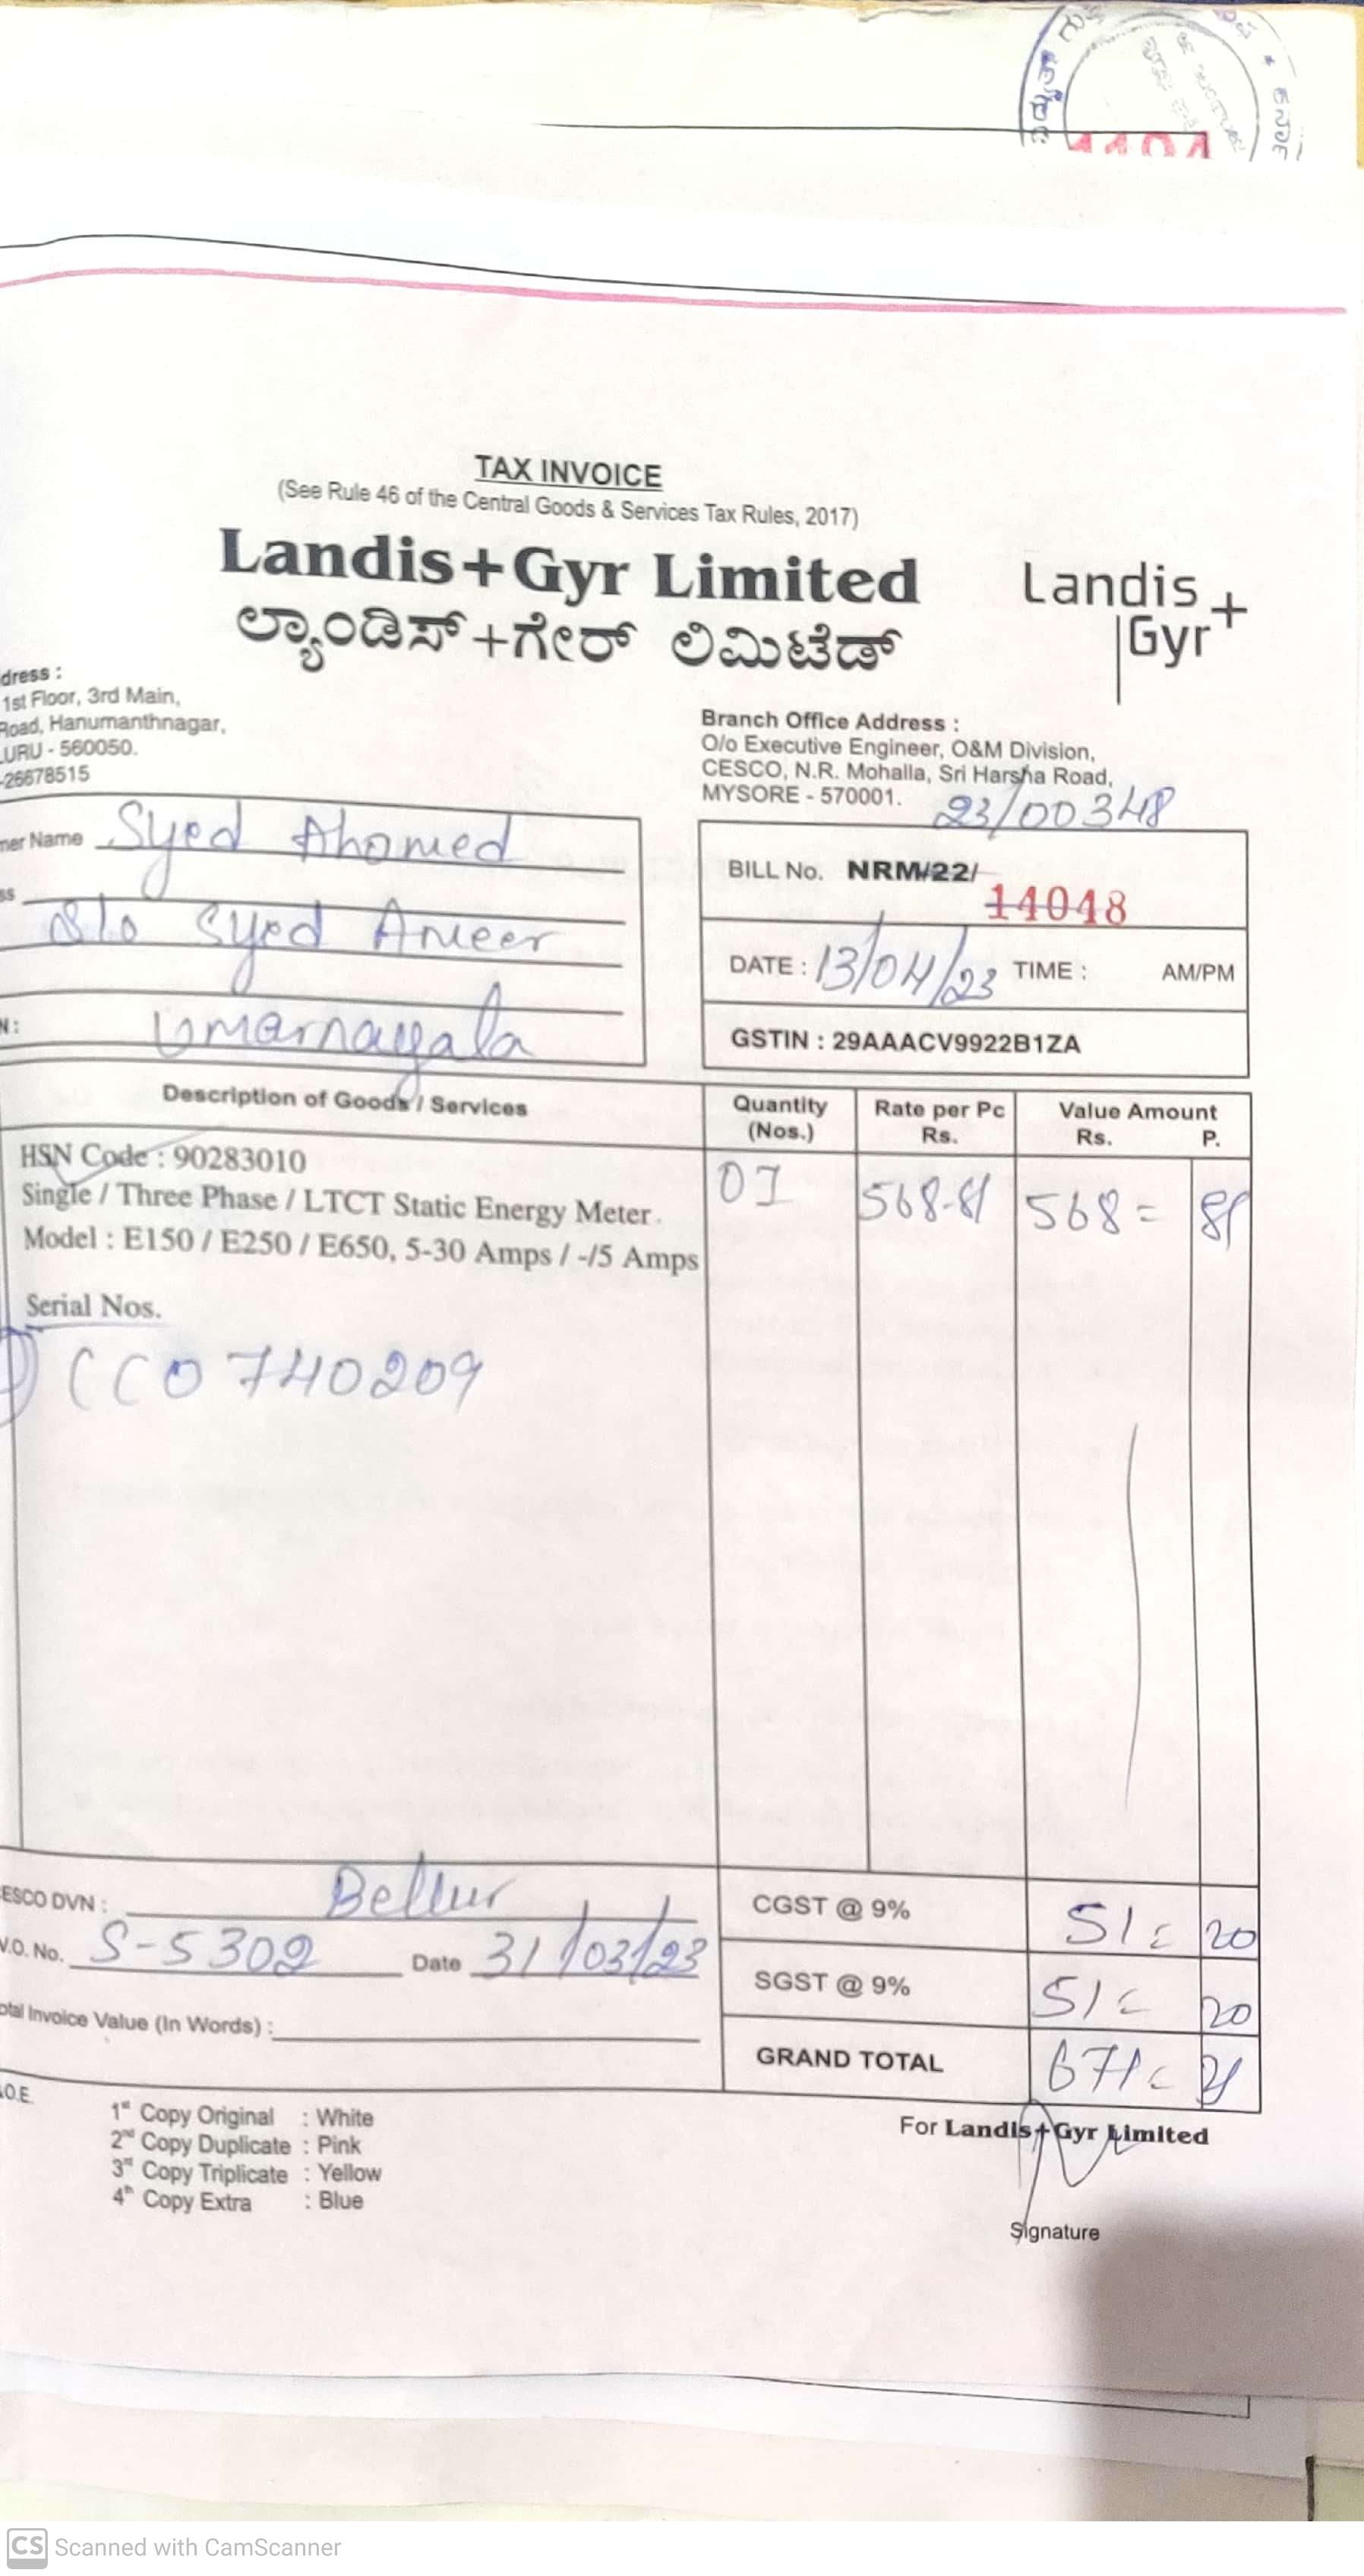 1101
TAX INVOICE
(See Rule 46 of the Central Goods & Services Tax Rules, 2017)
Landis+Gyr Limited
ಲ್ಯಾಂಡಿಸ್+ಗೇರ್ ಲಿಮಿಟೆಡ್
Landis
Gyr+
dress :
1st Floor, 3rd Main,
Road, Hanumanthnagar,
URU - 560050.
-26678515
Branch Office Address :
O/o Executive Engineer, O&M Division,
CESCO, N.R. Mohalla, Sri Harsha Road,
MYSORE - 570001.
23/00348
ner Name Syed Ahamed
ss
S/o Syed Ameer
N:
BILL No. NRM/22/ 14048
DATE : 13/04/23 TIME : AM/PM
GSTIN : 29AAACV9922B1ZA
Description of Goods / Services Quantity (Nos.) Rate per Pc Rs. Value Amount Rs. P.
HSN Code : 90283010
Single / Three Phase / LTCT Static Energy Meter.
Model : E150 / E250 / E650, 5-30 Amps / -/5 Amps
01 568-81 568= 81
Serial Nos.
CC0740209
ESCO DVN : Bellur
V.O. No. S-5302 Date 31/03/23
otal Invoice Value (In Words) :
CGST @ 9% 51= 20
SGST @ 9% 51= 20
GRAND TOTAL 671= 21
.O.E.
1st Copy Original : White
2nd Copy Duplicate : Pink
3rd Copy Triplicate : Yellow
4th Copy Extra : Blue
For Landis+Gyr Limited
Signature
CS Scanned with CamScanner